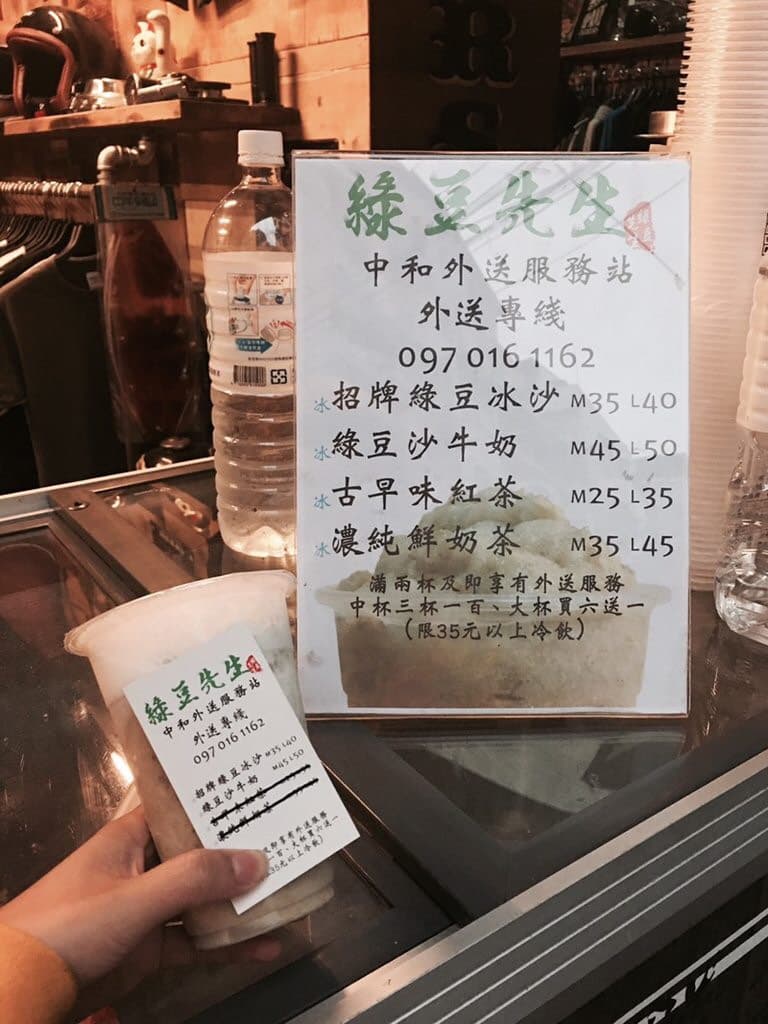 綠豆先生
中和外送服務站
外送專綫
097 016 1162
冰招牌綠豆冰沙 M35 L40
冰綠豆沙牛奶 M45 L50
冰古早味紅茶 M25 L35
冰濃純鮮奶茶 M35 L45
滿兩杯及即享有外送服務
中杯三杯一百、大杯買六送一
(限35元以上冷飲)
綠豆先生
中和外送服務站
外送專綫
097 016 1162
招牌綠豆冰沙 M35 L40
綠豆沙牛奶 M45 L50
及即享有外送服務
一百、大杯買六送一
35元以上冷飲)